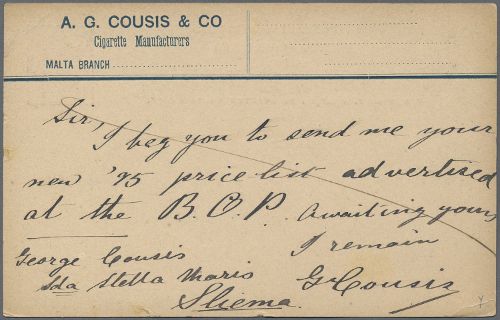 A. G. COUSIS & CO
Cigarette Manufacturers
MALTA BRANCH
Sir,
I beg you to send me your
new '95 price list advertised
at the B.C.P. Awaiting yours,
I remain
George Cousis
Sda Stella Maris
GCousis
Sliema.